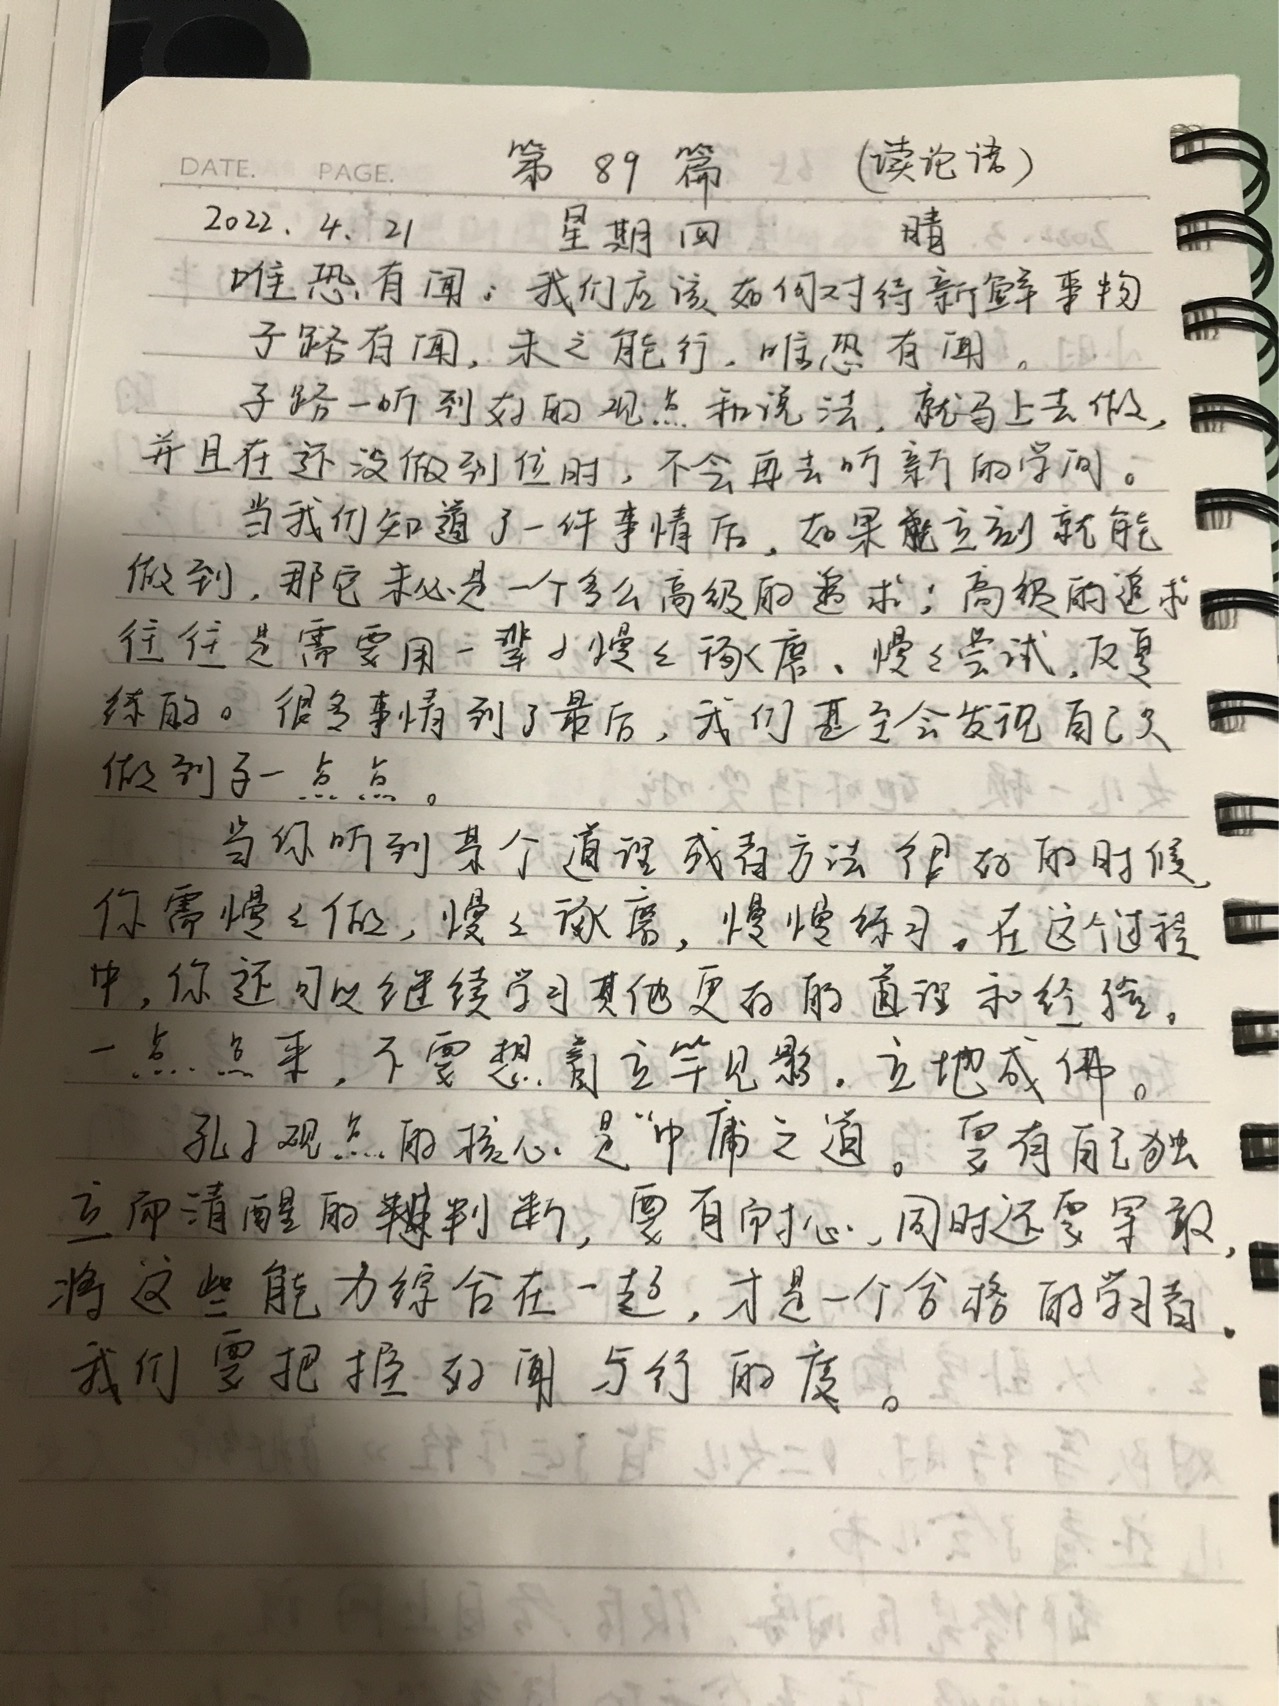 DATE. PAGE. 第 89 篇 (读论语)
2022.4.21 星期四 晴
唯恐有闻:我们应该如何对待新鲜事物
子路有闻,未之能行,唯恐有闻。
子路一听到好的观点和说法,就马上去做,
并且在还没做到位时,不会再去听新的学问。
当我们知道了一件事情后,如果能立刻就能
做到,那它未必是一个多么高级的追求;高级的追求
往往是需要用一辈子慢々琢磨、慢々尝试,反复
练的。很多事情到了最后,我们甚至会发现自己只
做到了一点点。
当你听到某个道理或者方法很好的时候,
你需慢々做,慢々琢磨,慢慢练习。在这个过程
中,你还可以继续学习其他更好的道理和经验。
一点点来,不要想着立竿见影,立地成佛。
孔子观点的核心是“中庸之道。要有自己独
立而清醒的判断,要有耐心,同时还要果敢,
将这些能力综合在一起,才是一个合格的学习者。
我们要把握好闻与行的度。